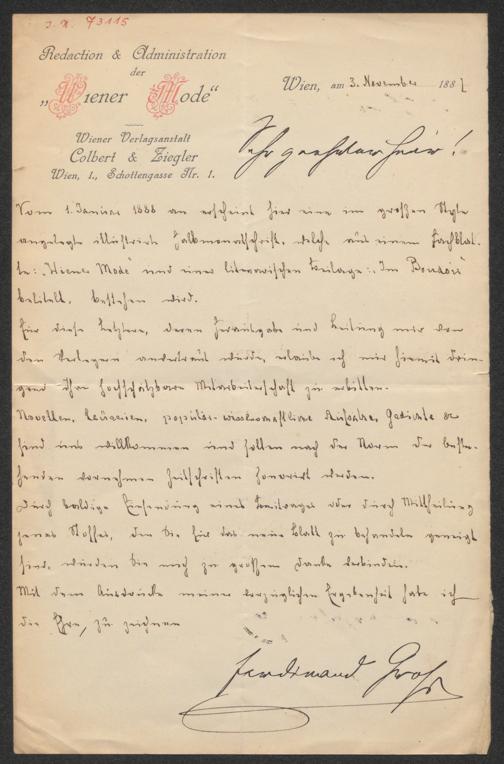 J. N. 73115
Redaction & Administration
der
„Wiener Mode“
Wiener Verlagsanstalt
Colbert & Ziegler
Wien, 1., Schottengasse Nr. 1.
Wien, am 3. November 1887
Sehr geehrter Herr!
Vom 1. Januar 1888 an erscheint hier eine im großen Style
angelegte illustrirte Halbmonatschrift, welche aus einem Fachblat-
te: „Wiener Mode“ und einer literarischen Beilage: „Im Boudoir“
betitelt, bestehen wird.
Für diese Letztere, deren Herausgabe und Leitung mir von
den Verlegern anvertraut wurde, erlaube ich mir hiemit drin-
gend Ihre hochschätzbare Mitarbeiterschaft zu erbitten.
Novellen, Causerien, populär-wissenschaftliche Aufsätze, Gedichte &
sind uns willkommen und sollen nach der Norm der beste-
henden vornehmen Zeitschriften honorirt werden.
Durch baldige Einsendung eines Beitrages oder durch Mittheilung
jenes Stoffes, den Sie für das neue Blatt zu behandeln geneigt
sind, würden Sie mich zu großem Danke verbinden.
Mit dem Ausdrucke meiner vorzüglichen Ergebenheit habe ich
die Ehre, zu zeichnen
Ferdinand Groß